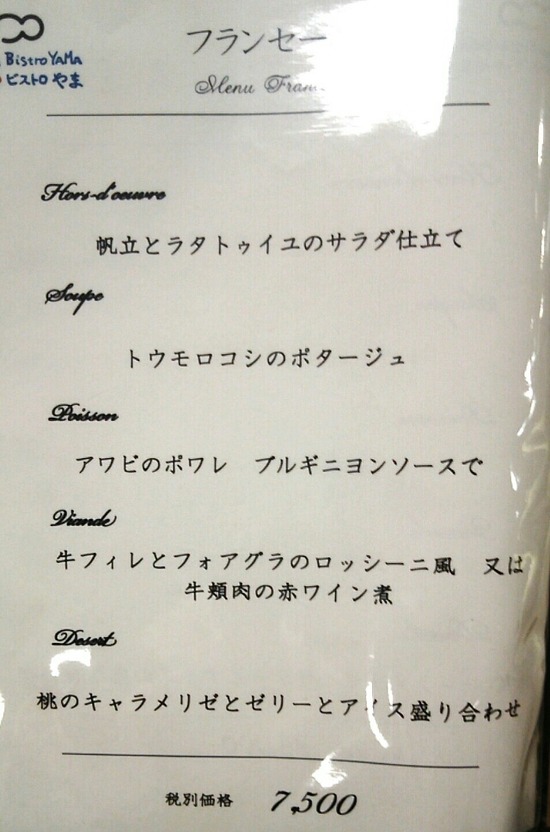 Bistro YaMa
ビストロ やま
フランセ
Menu
Hors-d'oeuvre
帆立とラタトゥイユのサラダ仕立て
Soupe
トウモロコシのポタージュ
Poisson
アワビのポワレ　ブルギニヨンソースで
Viande
牛フィレとフォアグラのロッシーニ風　又は
牛頬肉の赤ワイン煮
Desert
桃のキャラメリゼとゼリーとアイス盛り合わせ
税別価格　7,500